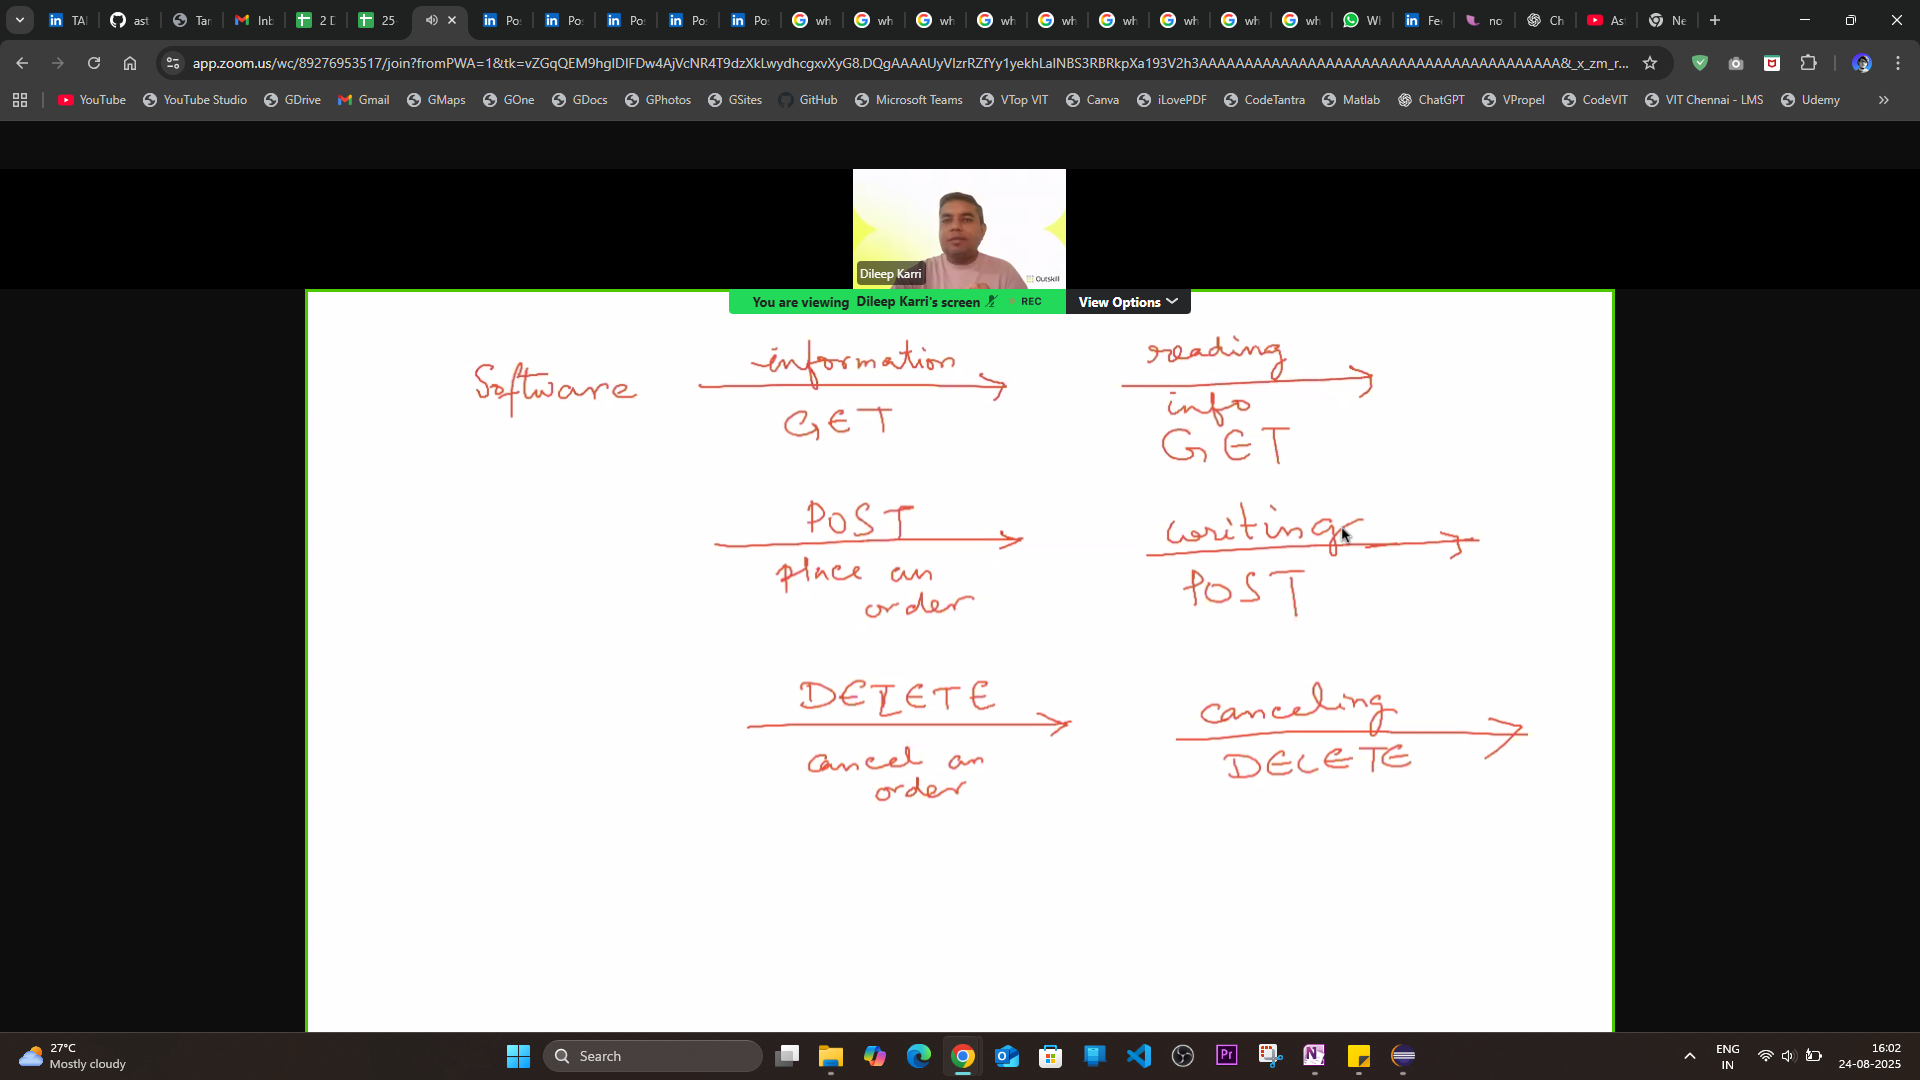 TAI
ast
Tar
Inb
2 D
25-
Pos
Pos
Pos
Pos
Pos
wh
wh
wh
wh
wh
wh
wh
wh
wh
Wh
Fee
no
Ch
As
Ne
app.zoom.us/wc/89276953517/join?fromPWA=1&tk=vZGqQEM9hgIDIFDw4AjVcNR4T9dzXkLwydhcgxvXyG8.DQgAAAAUyVIzrRZfYy1yekhLaINBS3RBRkpXa193V2h3AAAAAAAAAAAAAAAAAAAAAAAAAAAAAAAAAAAAAAAAAA&_x_zm_r...
YouTube YouTube Studio GDrive Gmail GMaps GOne GDocs GPhotos GSites GitHub Microsoft Teams VTop VIT Canva iLovePDF CodeTantra Matlab ChatGPT VPropel CodeVIT VIT Chennai - LMS Udemy
Dileep Karri
Outskill
You are viewing Dileep Karri's screen REC View Options
Software information reading
GET info
GET
POST writing
place an POST
order
DELETE canceling
cancel an DELETE
order
27°C
Mostly cloudy
Search
Pr
ENG
IN
16:02
24-08-2025